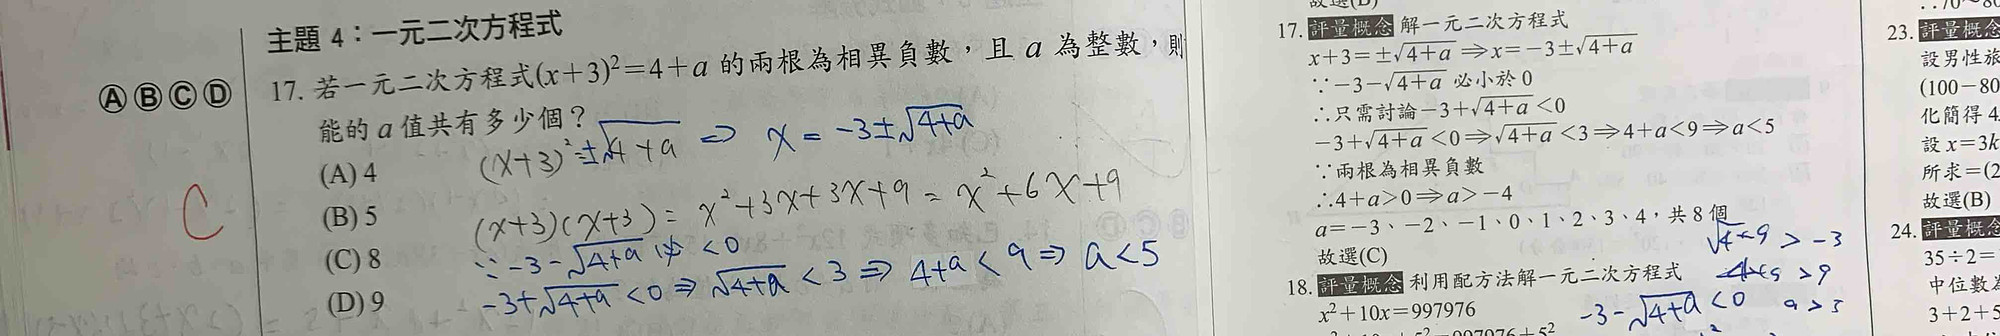 主題 4：一元二次方程式
ⒶⒷⒸⒹ
17. 若一元二次方程式(x+3)²=4+a 的兩根為相異負數，且 a 為整數，則
能的 a 值共有多少個？
(A) 4
(B) 5
(C) 8
(D) 9
C
(x+3)²=±√4+a ⇒ x = -3±√4+a
(x+3)(x+3) = x²+3x+3x+9 = x²+6x+9
∵ -3-√4+a 必 < 0
-3+√4+a < 0 ⇒ √4+a < 3 ⇒ 4+a < 9 ⇒ a < 5
故選(D)
17. 評量概念 解一元二次方程式
x+3=±√4+a ⇒ x=-3±√4+a
∵-3-√4+a 必小於 0
∴只需討論-3+√4+a<0
-3+√4+a<0⇒√4+a<3⇒4+a<9⇒a<5
∵兩根為相異負數
∴4+a>0⇒a>-4
a=-3、-2、-1、0、1、2、3、4，共 8 個
故選(C)
18. 評量概念 利用配方法解一元二次方程式
x²+10x=997976
> -3
> 9
-3-√4+a < 0
23. 評量概念
設男性旅
(100-80
化簡得 4
設 x=3k
所求=(2
故選(B)
24. 評量概念
35÷2=
中位數為
3+2+5